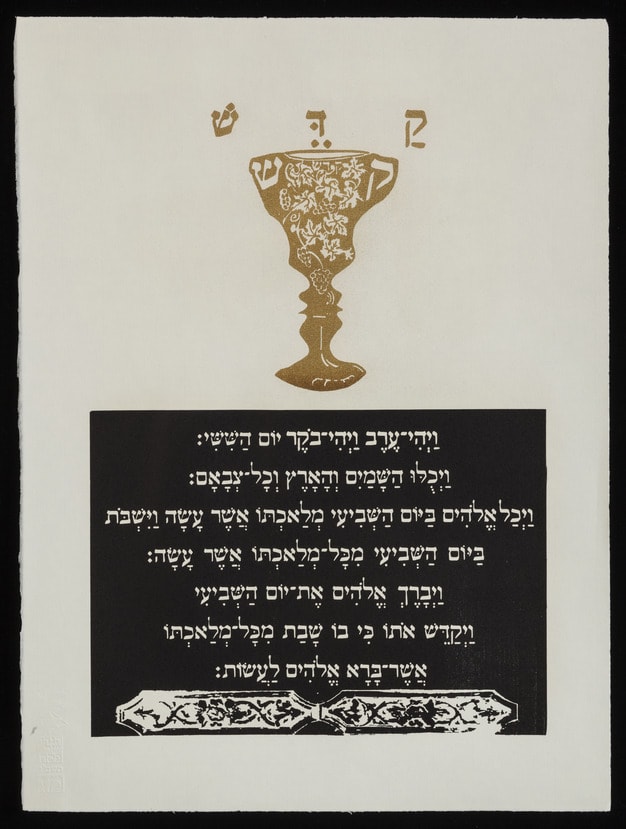 קַ דֵּ שׁ
ק ש
וַיְהִי־עֶרֶב וַיְהִי־בֹקֶר יוֹם הַשִּׁשִּׁי:
וַיְכֻלּוּ הַשָּׁמַיִם וְהָאָרֶץ וְכָל־צְבָאָם:
וַיְכַל אֱלֹהִים בַּיּוֹם הַשְּׁבִיעִי מְלַאכְתּוֹ אֲשֶׁר עָשָׂה וַיִּשְׁבֹּת
בַּיּוֹם הַשְּׁבִיעִי מִכָּל־מְלַאכְתּוֹ אֲשֶׁר עָשָׂה:
וַיְבָרֶךְ אֱלֹהִים אֶת־יוֹם הַשְּׁבִיעִי
וַיְקַדֵּשׁ אֹתוֹ כִּי בוֹ שָׁבַת מִכָּל־מְלַאכְתּוֹ
אֲשֶׁר־בָּרָא אֱלֹהִים לַעֲשׂוֹת: